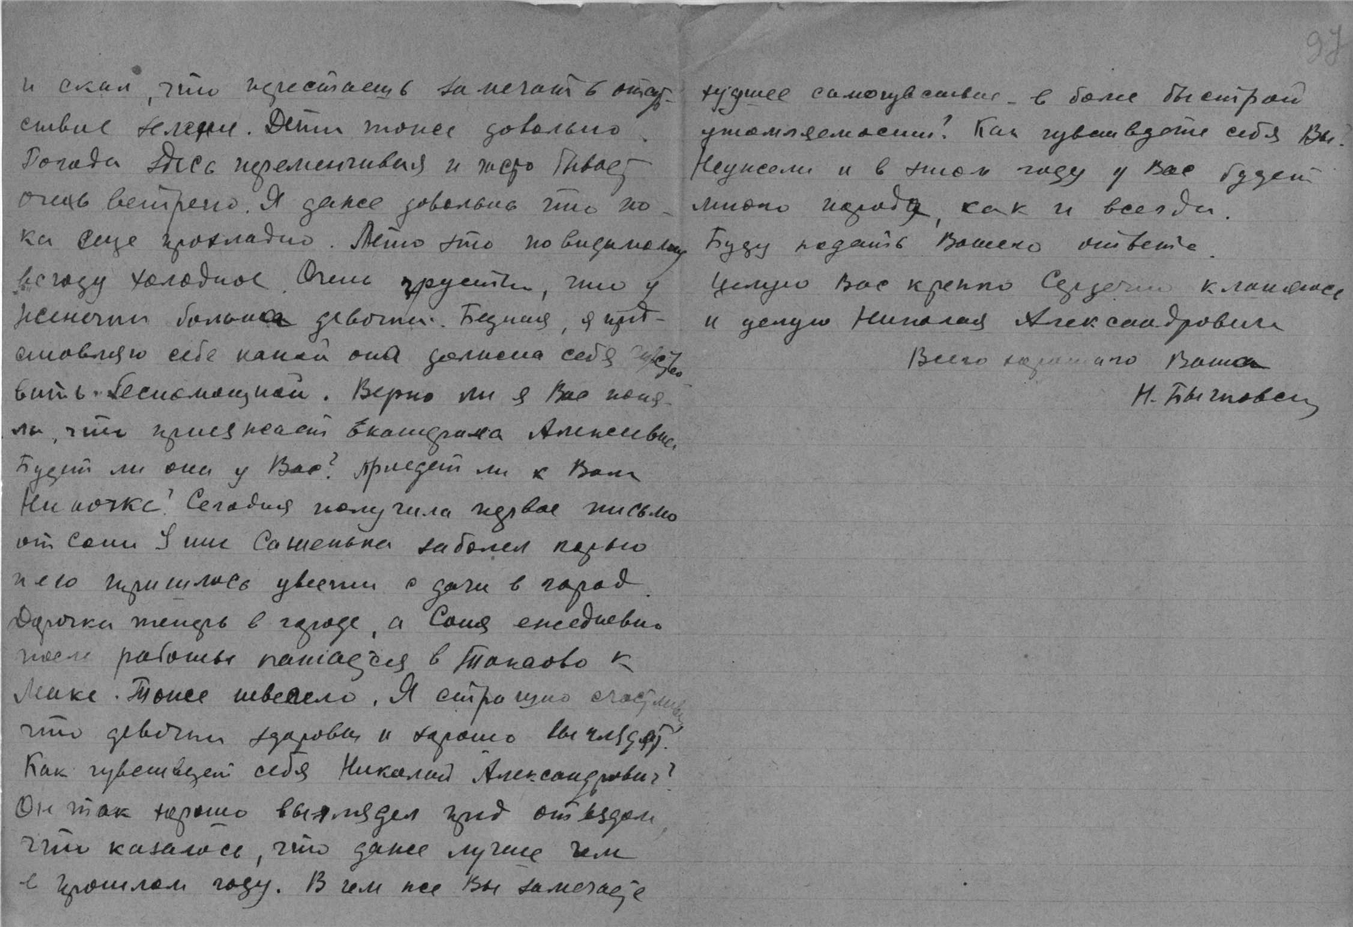 97
и скал, что перестаешь замечать отсут-
ствие зелени. Дети тоже довольны.
Погода здесь переменчивая и часто бывает
очень ветрено. Я даже довольна что по-
ка еще прохладно. Лето это повидимому
всюду холодное. Очень грустно, что у
Женечки больна девочка. Бедная, я пред-
ставляю себе какой она должна себя чувство
вать беспомощной. Верно ли я Вас поня-
ла, что приезжает Екатерина Алексеевна
Будет ли она у Вас? Приедет ли к Вам
Ниночка? Сегодня получила первое письмо
от Сони У них Сашенька заболел корью
и его пришлось увезти с дачи в город.
Дорочка теперь в городе, а Соня ежедневно
после работы катается в Токсово к
Мике. Тоже невесело. Я страшно счастлива
что девочки здоровы и хорошо выглядят.
Как чувствует себя Николай Александрович?
Он так хорошо выглядел пред отъездом,
что казалось, что даже лучше чем
в прошлом году. В чем же Вы замечаете
худшее самочувствие - в более быстрой
утомляемости? Как чувствуете себя Вы?
Неужели и в этом году у Вас будет
много народа, как и всегда.
Буду ждать Вашего ответа.
Целую Вас крепко Сердечно кланяюсь
и целую Николая Александровича
Всего хорошего Ваша
Н.